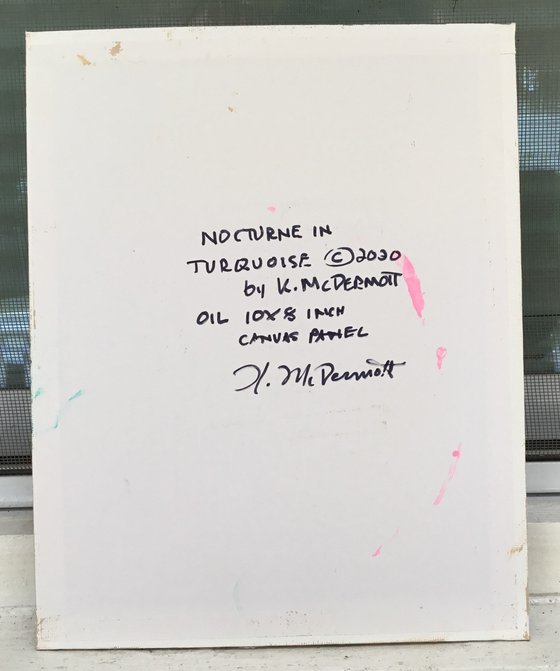 NOCTURNE IN
TURQUOISE © 2020
by K. McDERMOTT
OIL 10x8 INCH
CANVAS PANEL
K. McDermott